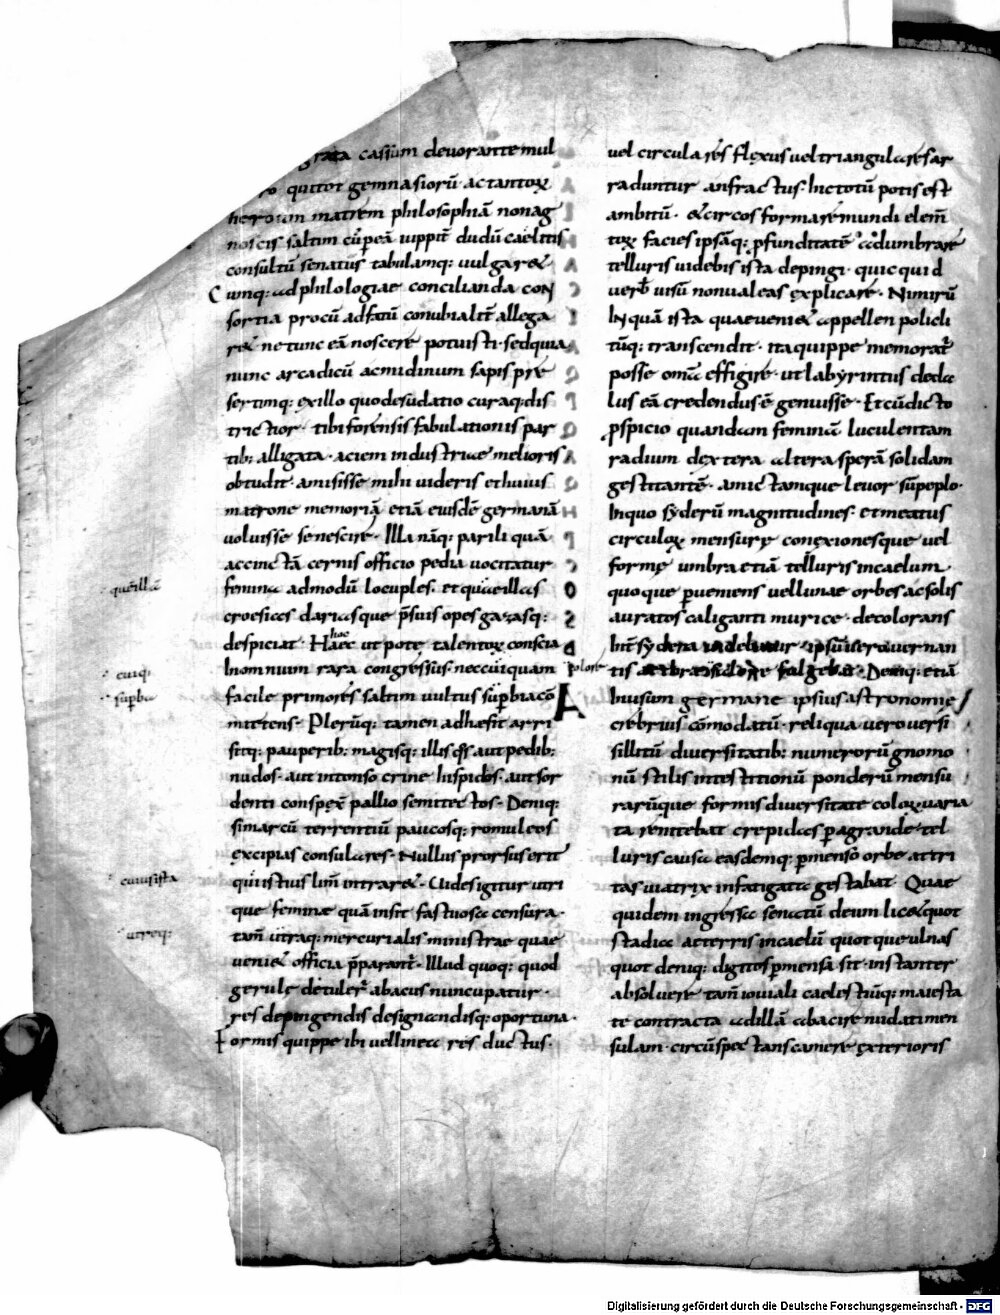 grata cassum devorante mul
quitot gemnasiorũ actantoꝝ
heroum matrem philosophiã nonag
noscis saltim cũ ꝑeã iuppit̃ dudũ caelitis
consultũ senatus tabulamq: uulgare&
Cumq: ad philologiae concilianda con
sortia procũ adfatũ conubialit̃ allega
re& ne tunc eã noscere potuisti sed quia
nunc arcadicũ ac midinum sapis pre
sertimq: ex illo quo desudatio curaq: dis
trictior tibi forensis fabulationis par
tib: alligata aciem industriae melioris
obtudit amisisse mihi uideris et huius
matrone memoriã etiã eiusdẽ germanã
uoluisse te nescire Illa nãq: parili quã
accinctã cernis officio pedia uocitatur
femina admodũ locuples et quae illas
croesias dariasque p̃ suis opes gazasq:
despiciat Haec ut pote talentoꝝ conscia
hominum rara congressus nec cuiquam
facile primores saltim uultus suꝑbia cõ
mittens Plerũq: tamen adhaesit arri
sitq: pauperib: magisq: illis
nudos aut intonso crine hispidos aut sor
denti conspex̃ pallio semitectos Deniq:
si marcũ terrentiũ paucosq: romuleos
excipias consulares Nullus prorsus erit
qui istius lim̃ intrare& Uides igitur utri
que feminae quã insit fastuosa censura
tam̃ utraq: mercurialis ministrae quae
ueni& officia p̃parant Illud quoq: quod
gerule detuler̃ abacus nuncupatur
res depingendis designandisq: oportuna
Formis quippe ibi uel linea res ductus
quẽ illa
cuiq:
suꝑba
cuiusista
utreq:
polore
A
uel circulares flexus uel triangulares ar
raduntur anfractus hic totũ potis est
ambitũ & circos formare mundi elem̃
toꝝ facies ipsãq: ꝓfunditatẽ adumbrare
telluris uidebis ista depingi quicquid
uerb̃ uisũ non ualeas explicare Nimirũ
Inquã ista quae ueni& appellen policli
tũq: transcendit ita quippe memorat̃
posse om̃a effigire ut labyrintus deda
lus eã credendus ẽ genuisse Et cũ dicto
ꝓspicio quandam feminã luculentam
radium dextera altera sperã solidam
gestitantẽ amictamque leuor sũ peplo
Inquo syderũ magnitudines et meatus
circuloꝝ mensurę conexionesque uel
formę umbra etiã telluris in caelum
quoque ꝑueniens uel lunae orbes ac solis
auratos caliganti murice decolorans
Int̃ sydera
tis Deniq: etiã
Inusum germane ipsius astronomie
crebrius cõmodatũ reliqua uero uersi
sillitũ diuersitatib: numerorũ gnomo
nũ stilis intestitionũ ponderũ mensu
rarũque formis diuersitate coloꝝ uaria
ta renitebat crepidas ꝑagrande tel
luris causa easdemq: ꝑmenso orbe attri
tas uiatrix infatigata gestabat Quae
quidem ingressa senatũ deum lic& quot
stadia ac terris in caelũ quot que ulnas
quot deniq: digitos ꝑmensa sit instanter
absoluere tam̃ iouiali caelestũq: maiesta
te contracta ad illã abaci renudati men
sulam circũspectans camerę exterioris
Digitalisierung gefördert durch die Deutsche Forschungsgemeinschaft - DFG